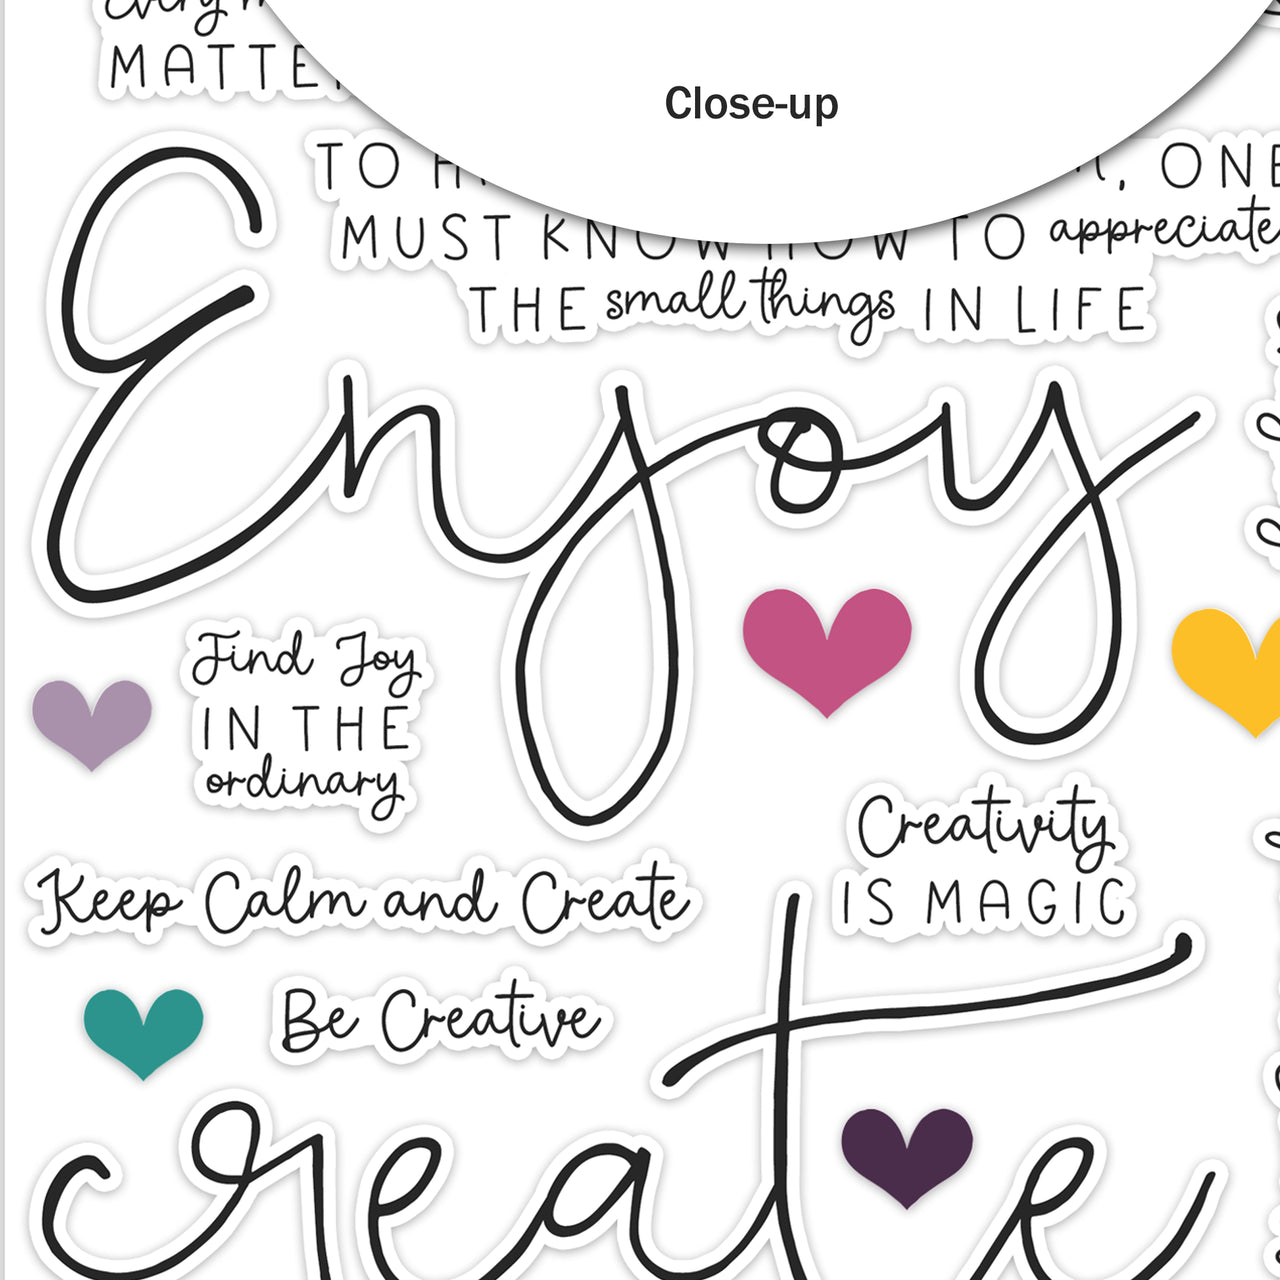 Close-up
TO
ONE
MUST KNOW HOW TO appreciate
THE small things IN LIFE
Enjoy
Find Joy
IN THE
ordinary
Creativity
IS MAGIC
Keep Calm and Create
Be Creative
create